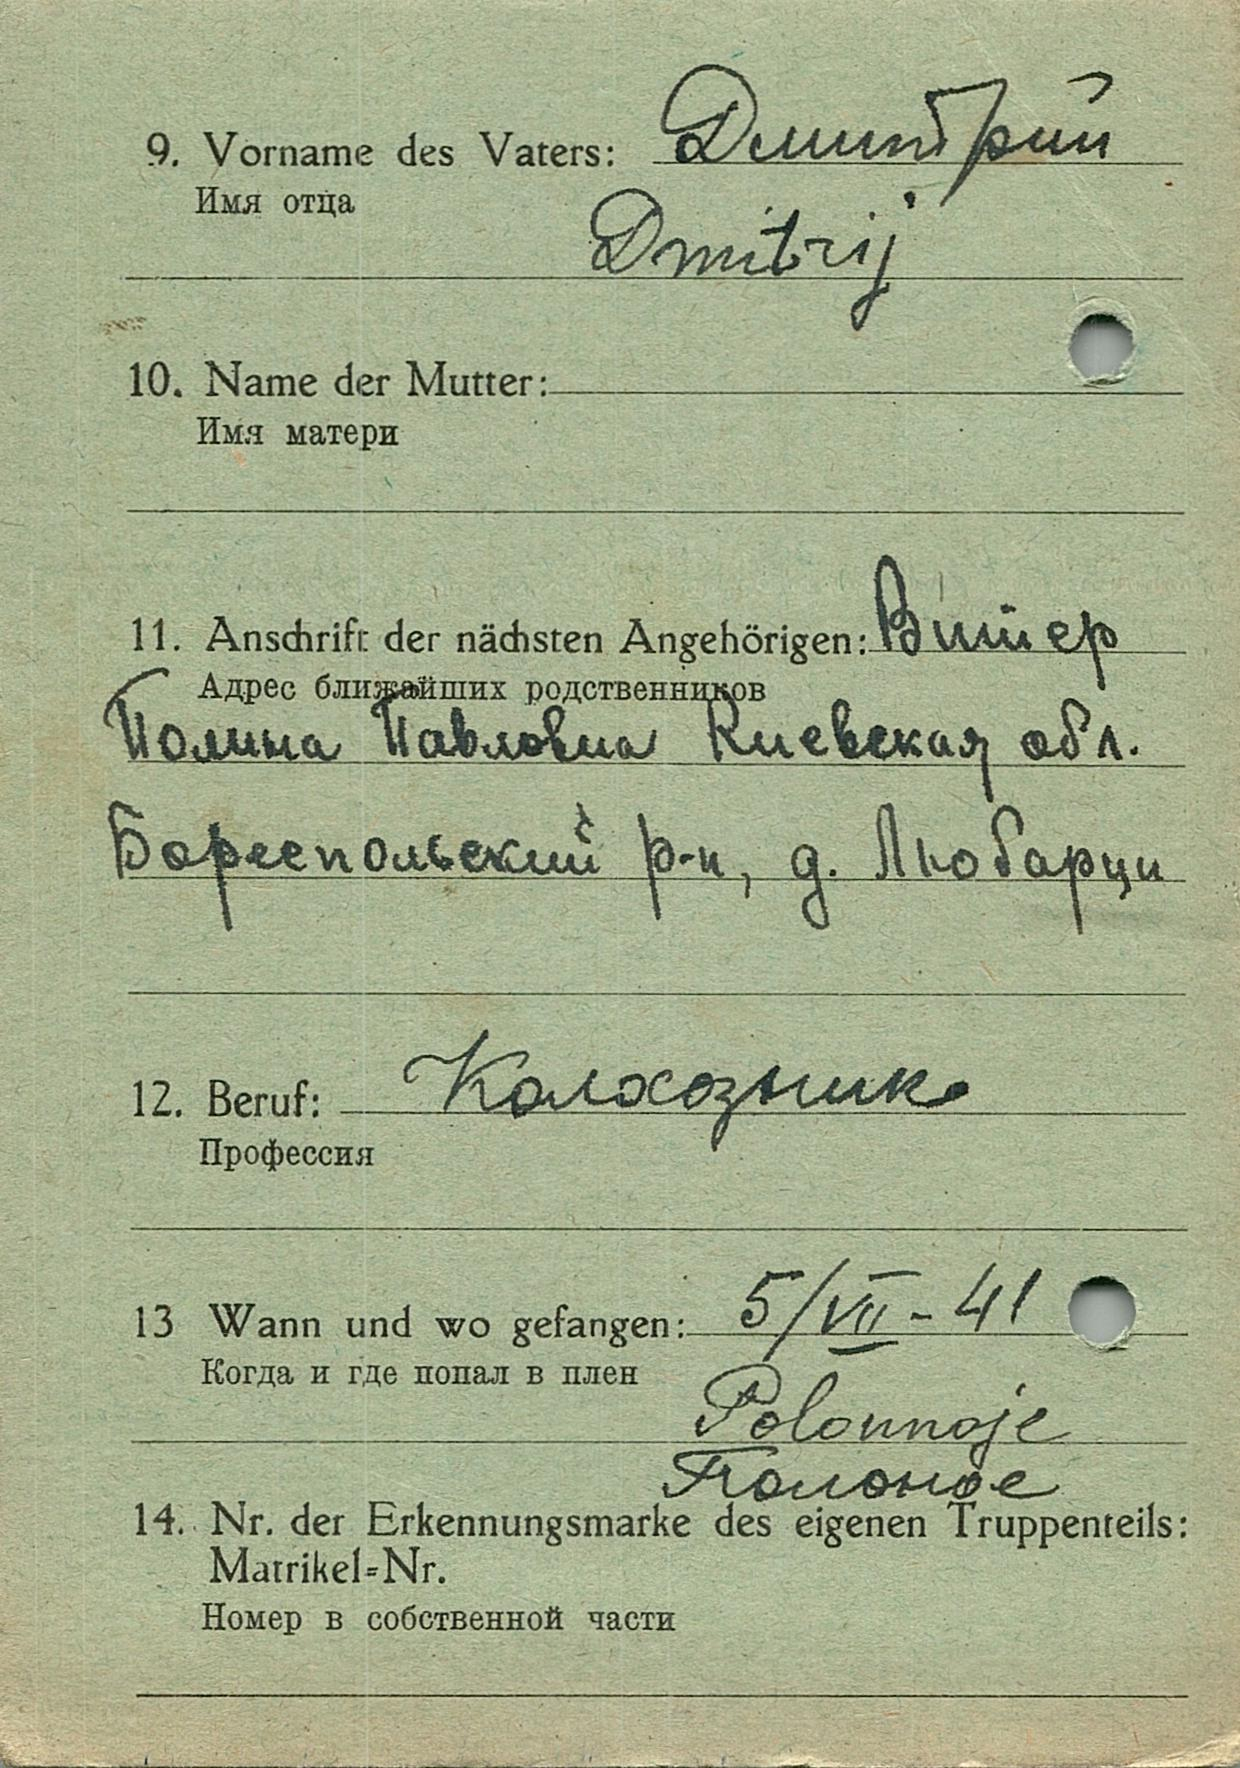 9. Vorname des Vaters: Дмитрий
Имя отца
Dmitrij
10. Name der Mutter:
Имя матери
11. Anschrift der nächsten Angehörigen: Витер
Адрес ближайших родственников
Полина Павловна Киевская обл.
Бориспольский р-н, д. Любарци
12. Beruf: Колхозник
Профессия
13 Wann und wo gefangen: 5/VII - 41
Когда и где попал в плен
Polonnoje
Полоное
14. Nr. der Erkennungsmarke des eigenen Truppenteils:
Matrikel=Nr.
Номер в собственной части